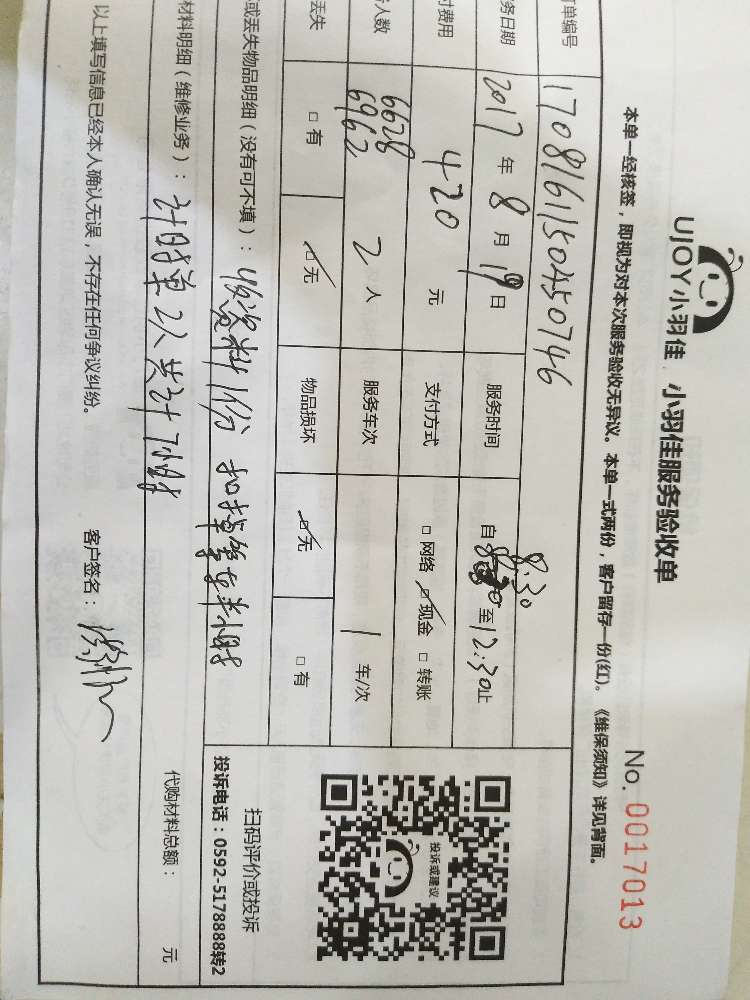 UJOY小羽佳 小羽佳服务验收单
No. 0017013
本单一经核签，即视为对本次服务验收无异议。本单一式两份，客户留存一份(红)。《维保须知》详见背面。
单编号 1708161150450746
务日期 2017 年 8 月 19 日 服务时间 自 8:30 至 12:30 止
付费用 420 元 支付方式 □ 网络 ☑ 现金 □ 转账
人数 6628 6962 2 人 服务车次 1 车/次
丢失 □ 有 ☑ 无 物品损坏 ☑ 无 □ 有
或丢失物品明细（没有可不填）： 收资料1份 扣 半小时
材料明细（维修业务）： 计时单2人共计7小时
代购材料总额： 元
以上填写信息已经本人确认无误，不存在任何争议纠纷。 客户签名：
投诉或建议
扫码评价或投诉
投诉电话：0592-5178888转2